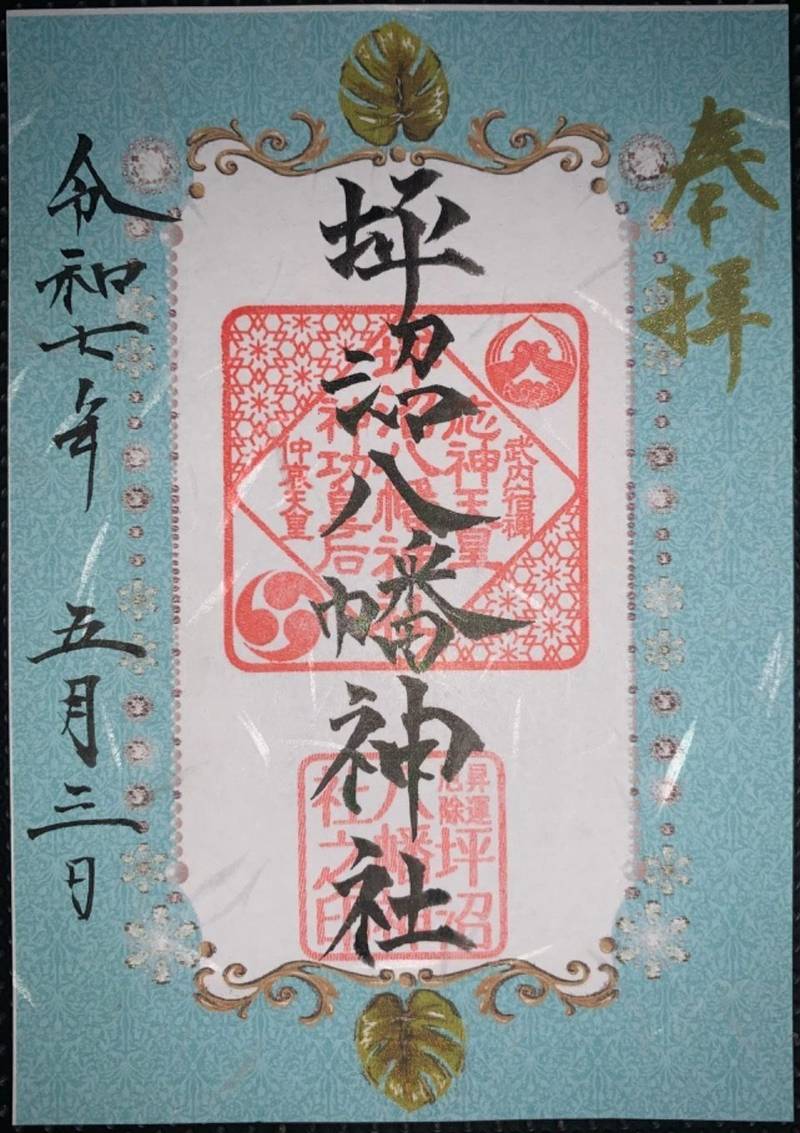 奉拝
坪沼八幡神社
令和七年 五月三日
武内宿禰
応神天皇
坪沼八幡神社
神功皇后
仲哀天皇
昇運
厄除
坪沼
八幡神
社之印